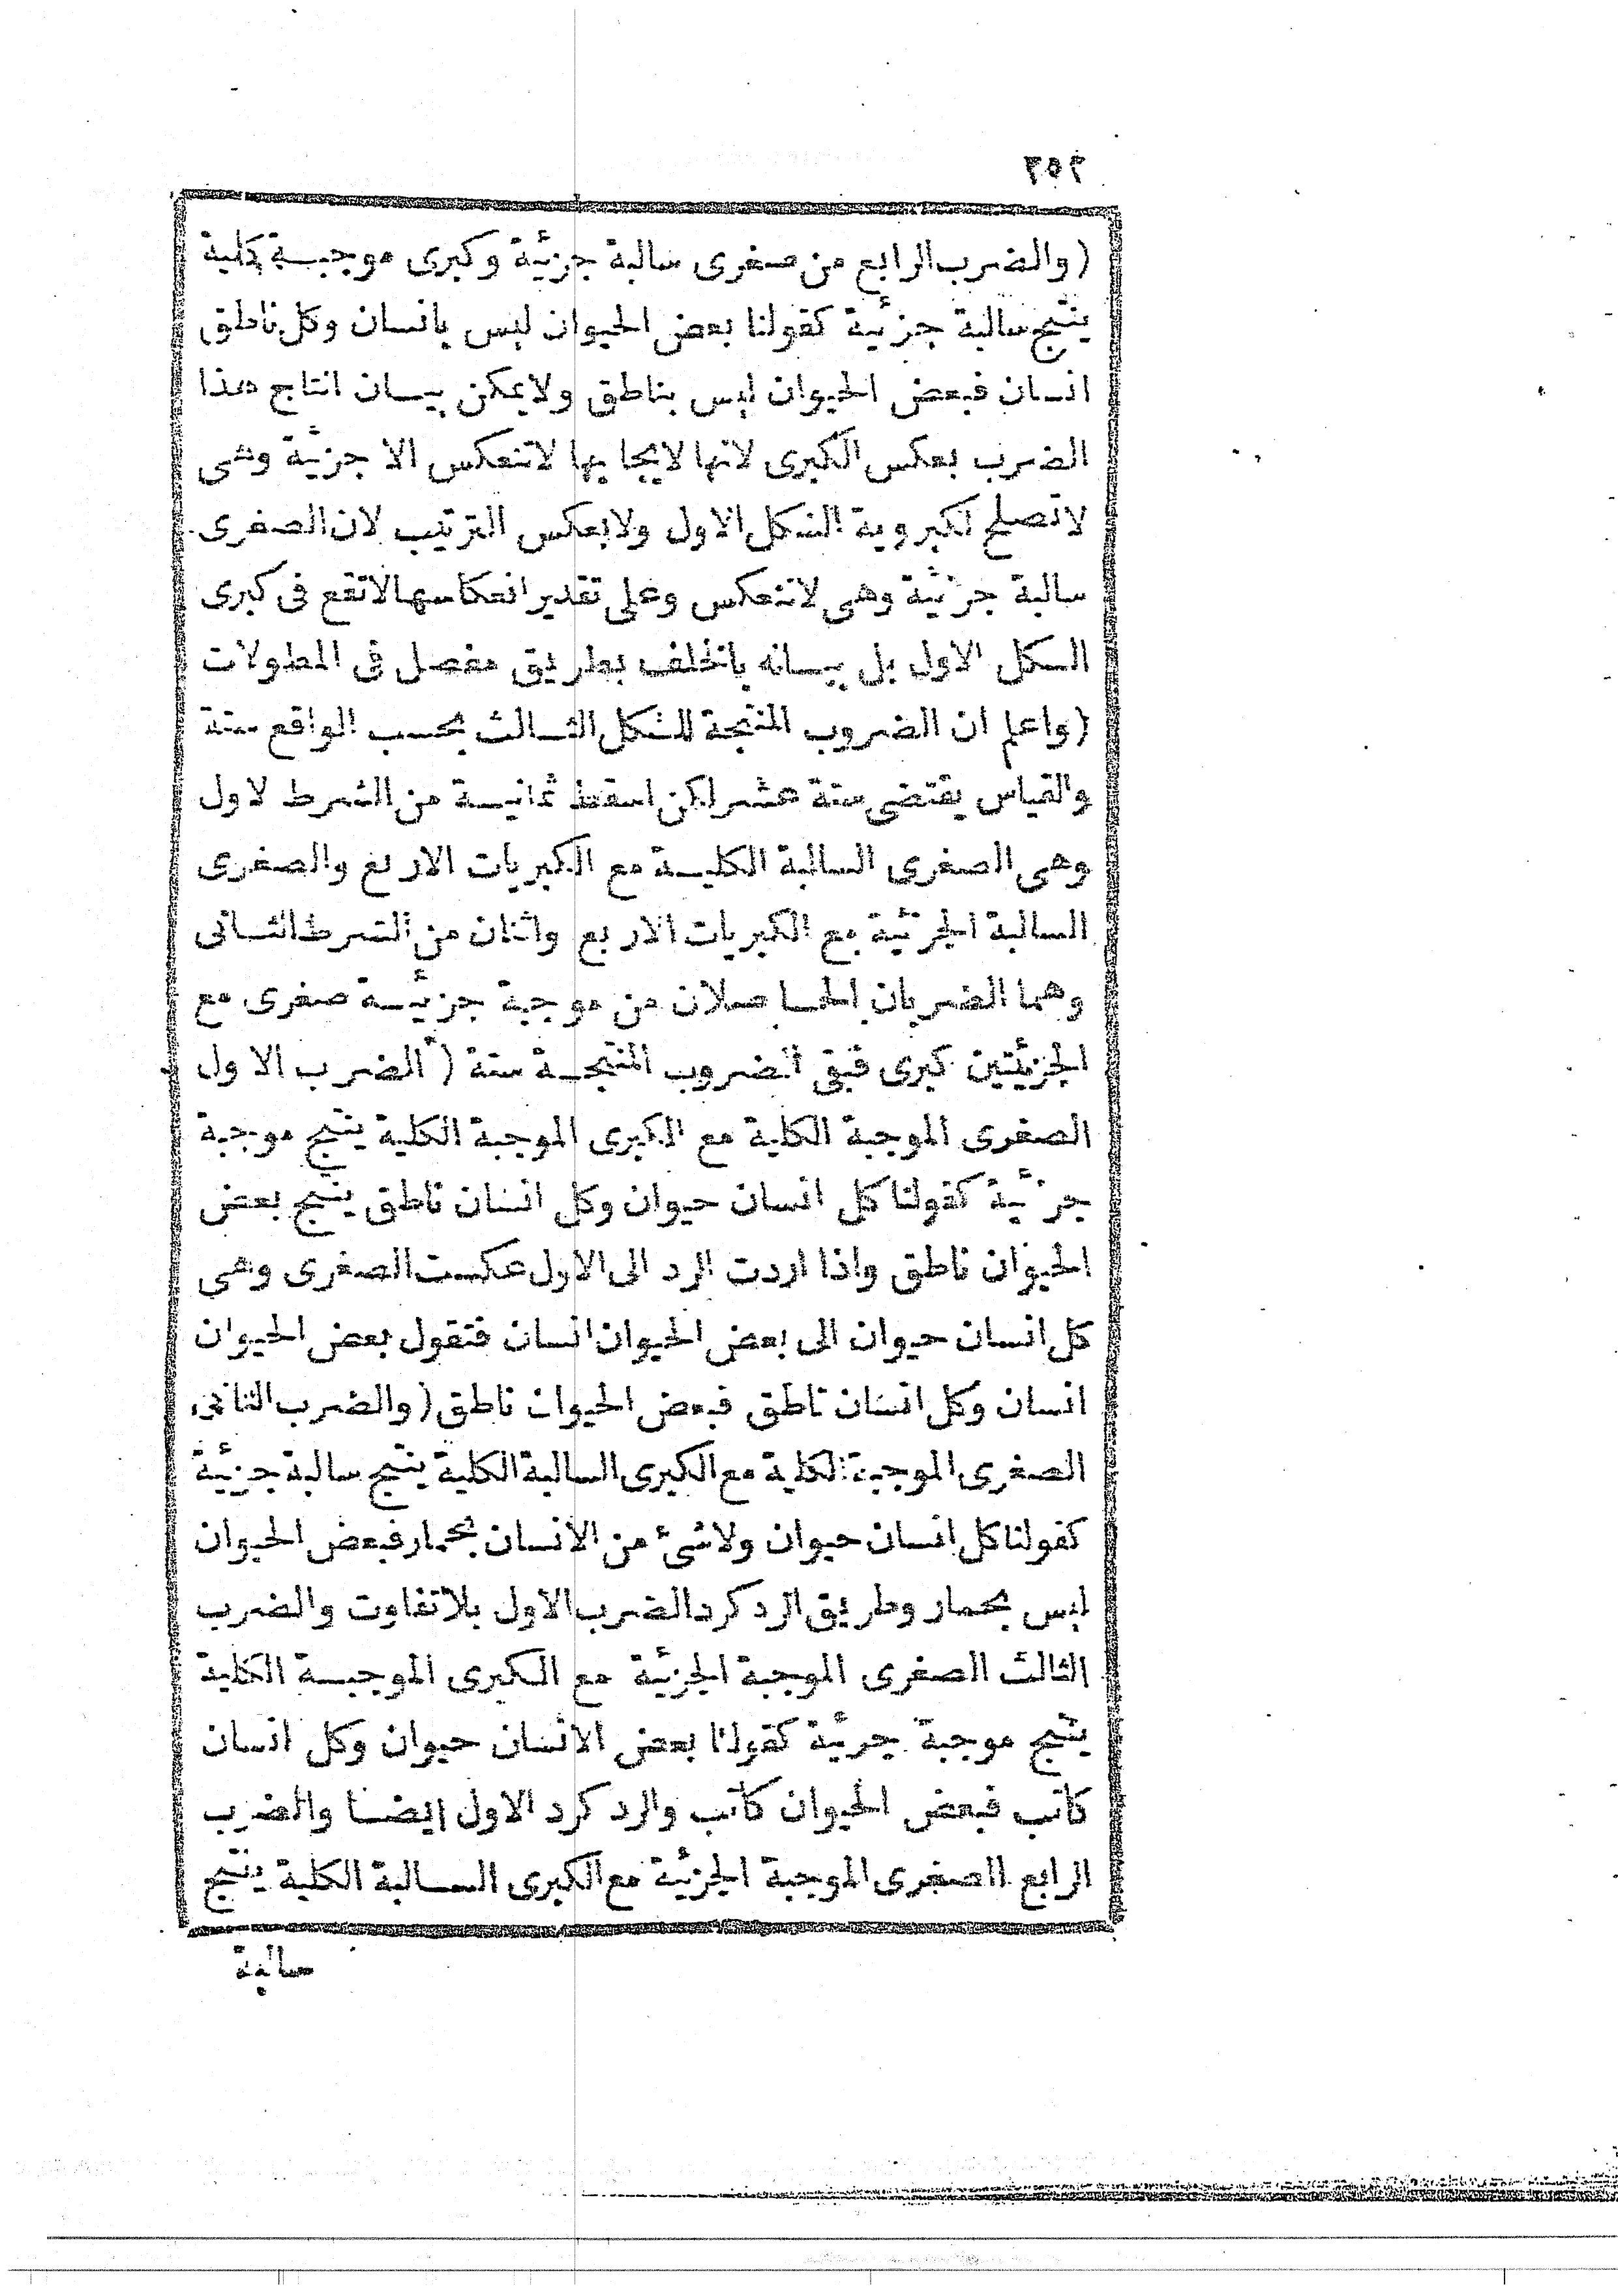 ٢٥٢
(والضرب الرابع من صغرى سالبة جزئية وكبرى موجبة كلية
ينتج سالبة جزئية كقولنا بعض الحيوان ليس بانسان وكل ناطق
انسان فبعض الحيوان ليس بناطق ولا يمكن بيان انتاج هذا
الضرب بعكس الكبرى لانها لايجابها لاتنعكس الا جزئية وهى
لاتصلح لكبروية الشكل الاول ولابعكس الترتيب لان الصغرى
سالبة جزئية وهى لاتنعكس وعلى تقدير انعكاسها لاتقع فى كبرى
الشكل الاول بل بيانه بالخلف بطريق مفصل فى المطولات
(واعلم ان الضروب المنتجة للشكل الثالث بحسب الواقع ستة
والقياس يقتضى ستة عشر لكن اسقط ثمانية من الشرط لاول
وهى الصغرى السالبة الكلية مع الكبريات الاربع والصغرى
السالبة الجزئية مع الكبريات الاربع واثنان من الشرط الثانى
وهما الضربان الحاصلان من موجبة جزئية صغرى مع
الجزئيتين كبرى فبقى الضروب المنتجة ستة (الضرب الاول
الصغرى الموجبة الكلية مع الكبرى الموجبة الكلية ينتج موجبة
جزئية كقولنا كل انسان حيوان وكل انسان ناطق ينتج بعض
الحيوان ناطق واذا اردت الرد الى الاول عكست الصغرى وهى
كل انسان حيوان الى بعض الحيوان انسان فتقول بعض الحيوان
انسان وكل انسان ناطق فبعض الحيوان ناطق (والضرب الثانى
الصغرى الموجبة الكلية مع الكبرى السالبة الكلية ينتج سالبة جزئية
كقولنا كل انسان حيوان ولاشئ من الانسان بحمار فبعض الحيوان
ليس بحمار وطريق الرد كرد الضرب الاول بلاتفاوت والضرب
الثالث الصغرى الموجبة الجزئية مع الكبرى الموجبة الكلية
ينتج موجبة جزئية كقولنا بعض الانسان حيوان وكل انسان
كاتب فبعض الحيوان كاتب والرد كرد الاول ايضا والضرب
الرابع الصغرى الموجبة الجزئية مع الكبرى السالبة الكلية ينتج
سالبة